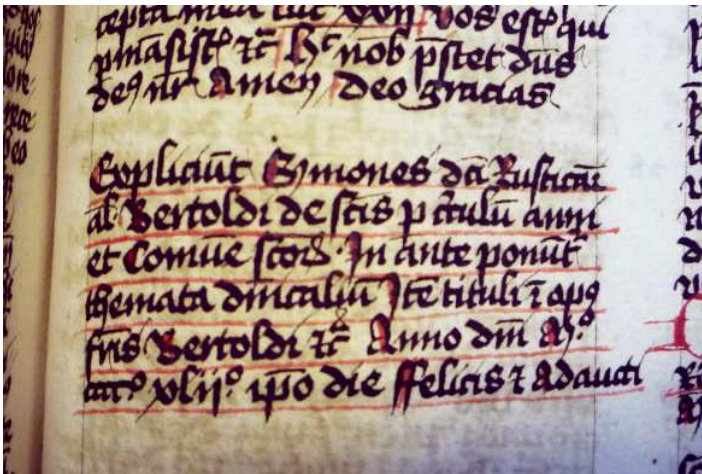 cepta mea luc xxij vos estꝭ qui
pmāsistꝭ ⁊cͣ hͨ nob̄ p̄stet dūs
deꝰ nr̄ Amen deo gracias
Expliciūt Sermones dc̄i Rusticani
al̄ Bertoldi de sc̄is p cͥculū anni
et Comūe sc̄oꝝ In ante ponūt᷑
themata dm̄icaliū Itē tituli ī opꝰ
frīs Bertoldi ⁊cͣ Anno dm̄ Mͦ
ccccͦ xlijͦ ip̄o die ffelicis ⁊ Adaucti